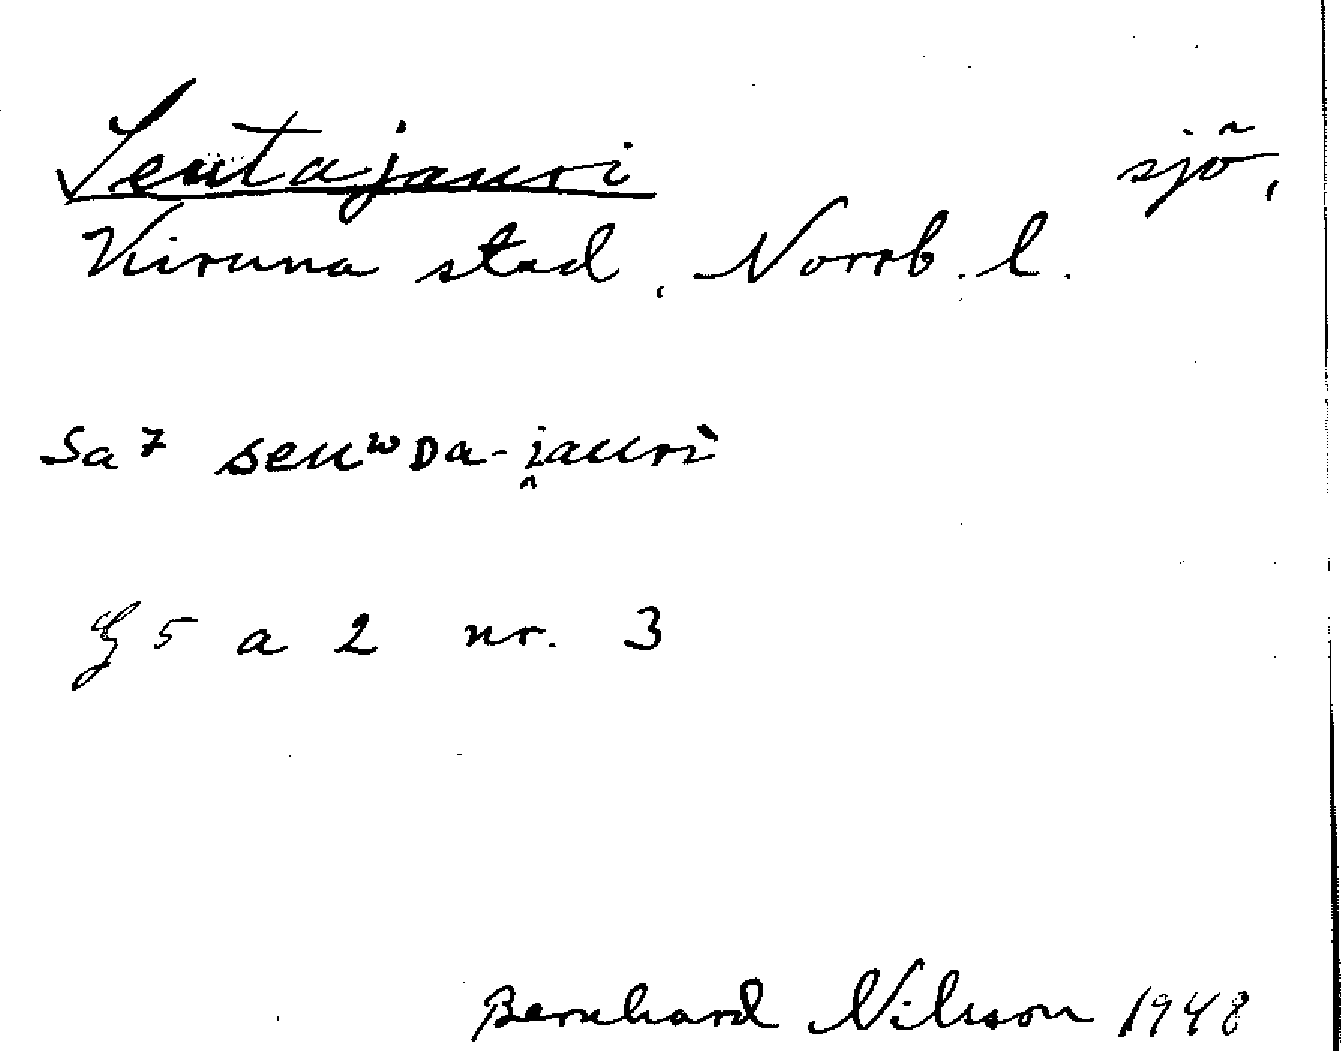 Seutajauri sjö,
Kiruna stad, Norrb. l.
Sa 7 seuʷDa-i̯auri
5 a 2 nr. 3
Bernhard Nilsson 1948